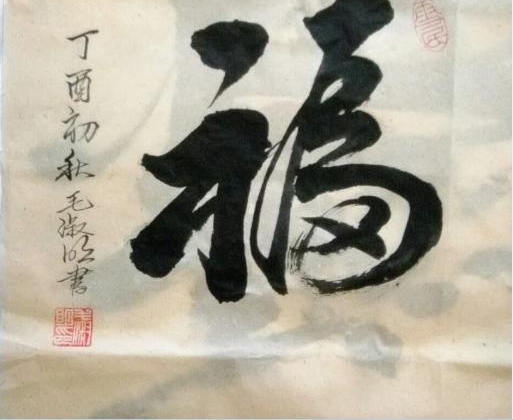 福
丁酉初秋毛淑明書